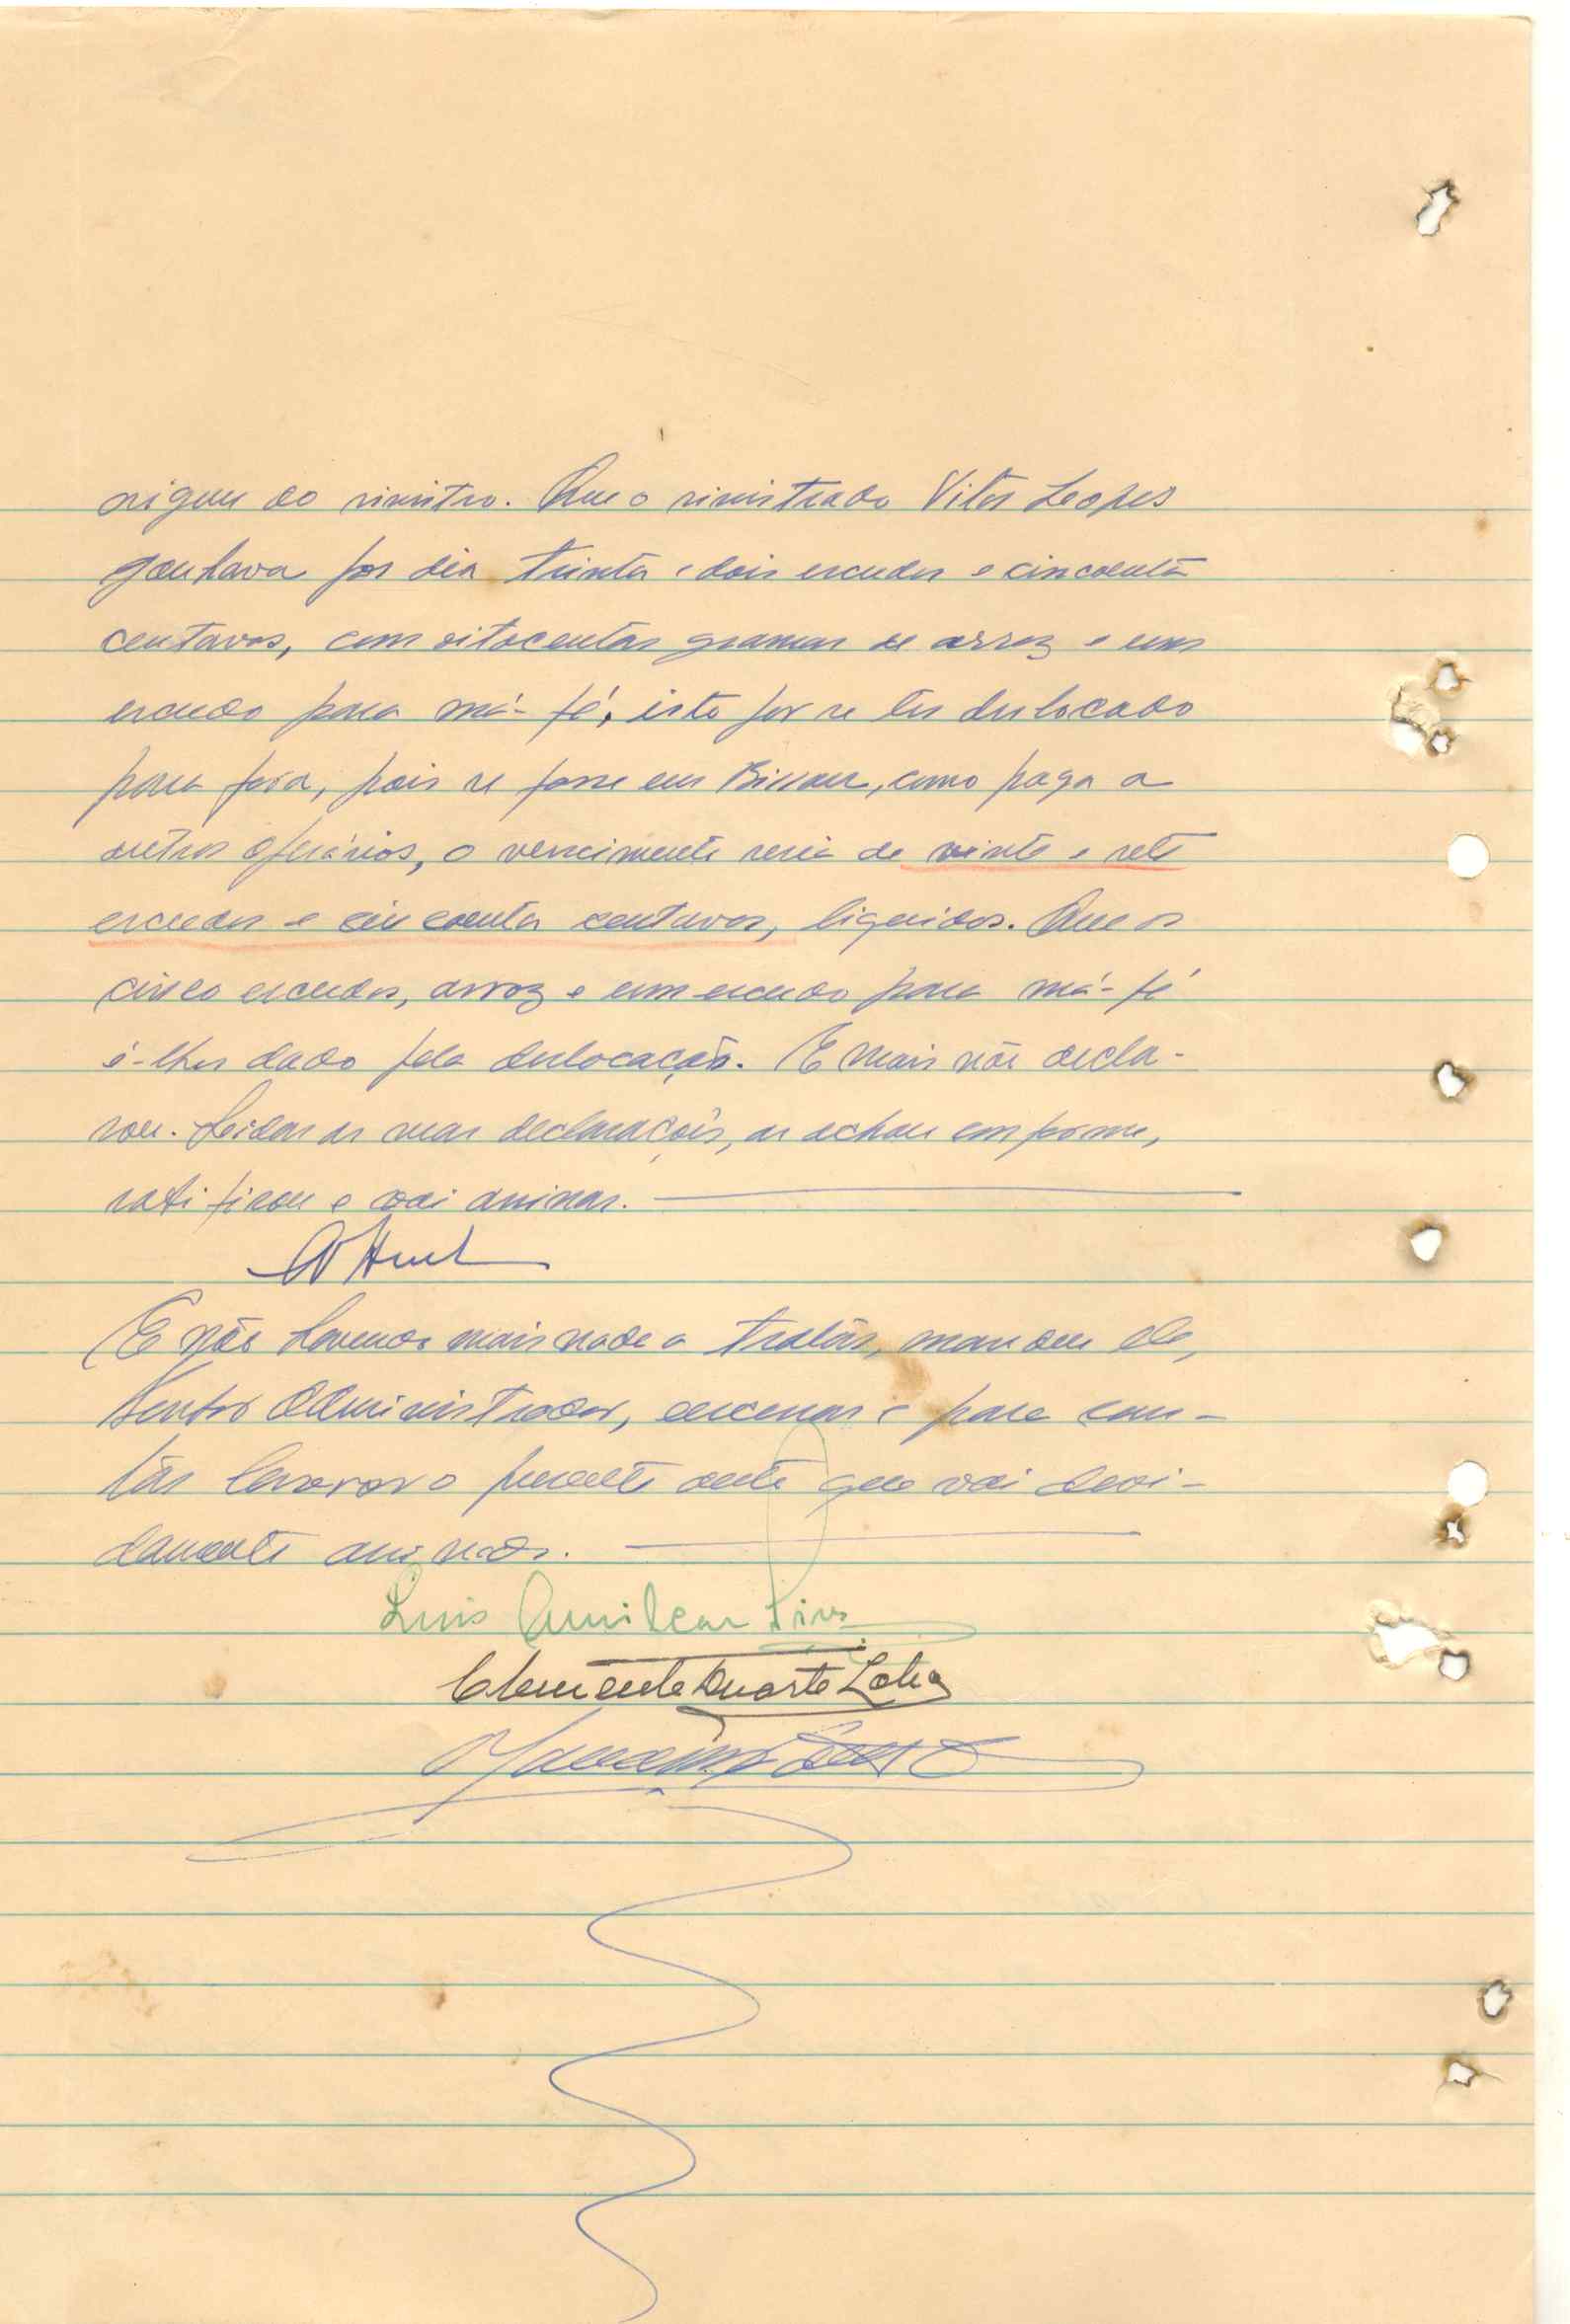 origem do sinistro. Que o sinistrado Vitor Lopes
ganhava por dia trinta e dois escudos e cincoenta
centavos, com oitocentas gramas de arroz e um
escudo para má-fé, isto por se ter deslocado
para fora, pois se fosse em Bissau, como paga a
outros operários, o vencimento seria de vinte e sete
escudos e cincoenta centavos, liquidos. Que os
cinco escudos, arroz e um escudo para má-fé
é-lhes dado pela deslocação. E mais não decla-
rou. Lidas as suas declarações, as achou conforme,
ratificou e vai assinar.
E não havendo mais nada a tratar, mandou ele,
Senhor Administrador, encerrar e para cons-
tar lavrar o presente auto que vai devi-
damente assinado.
Luis Amilcar Pires
Clemente Duarte